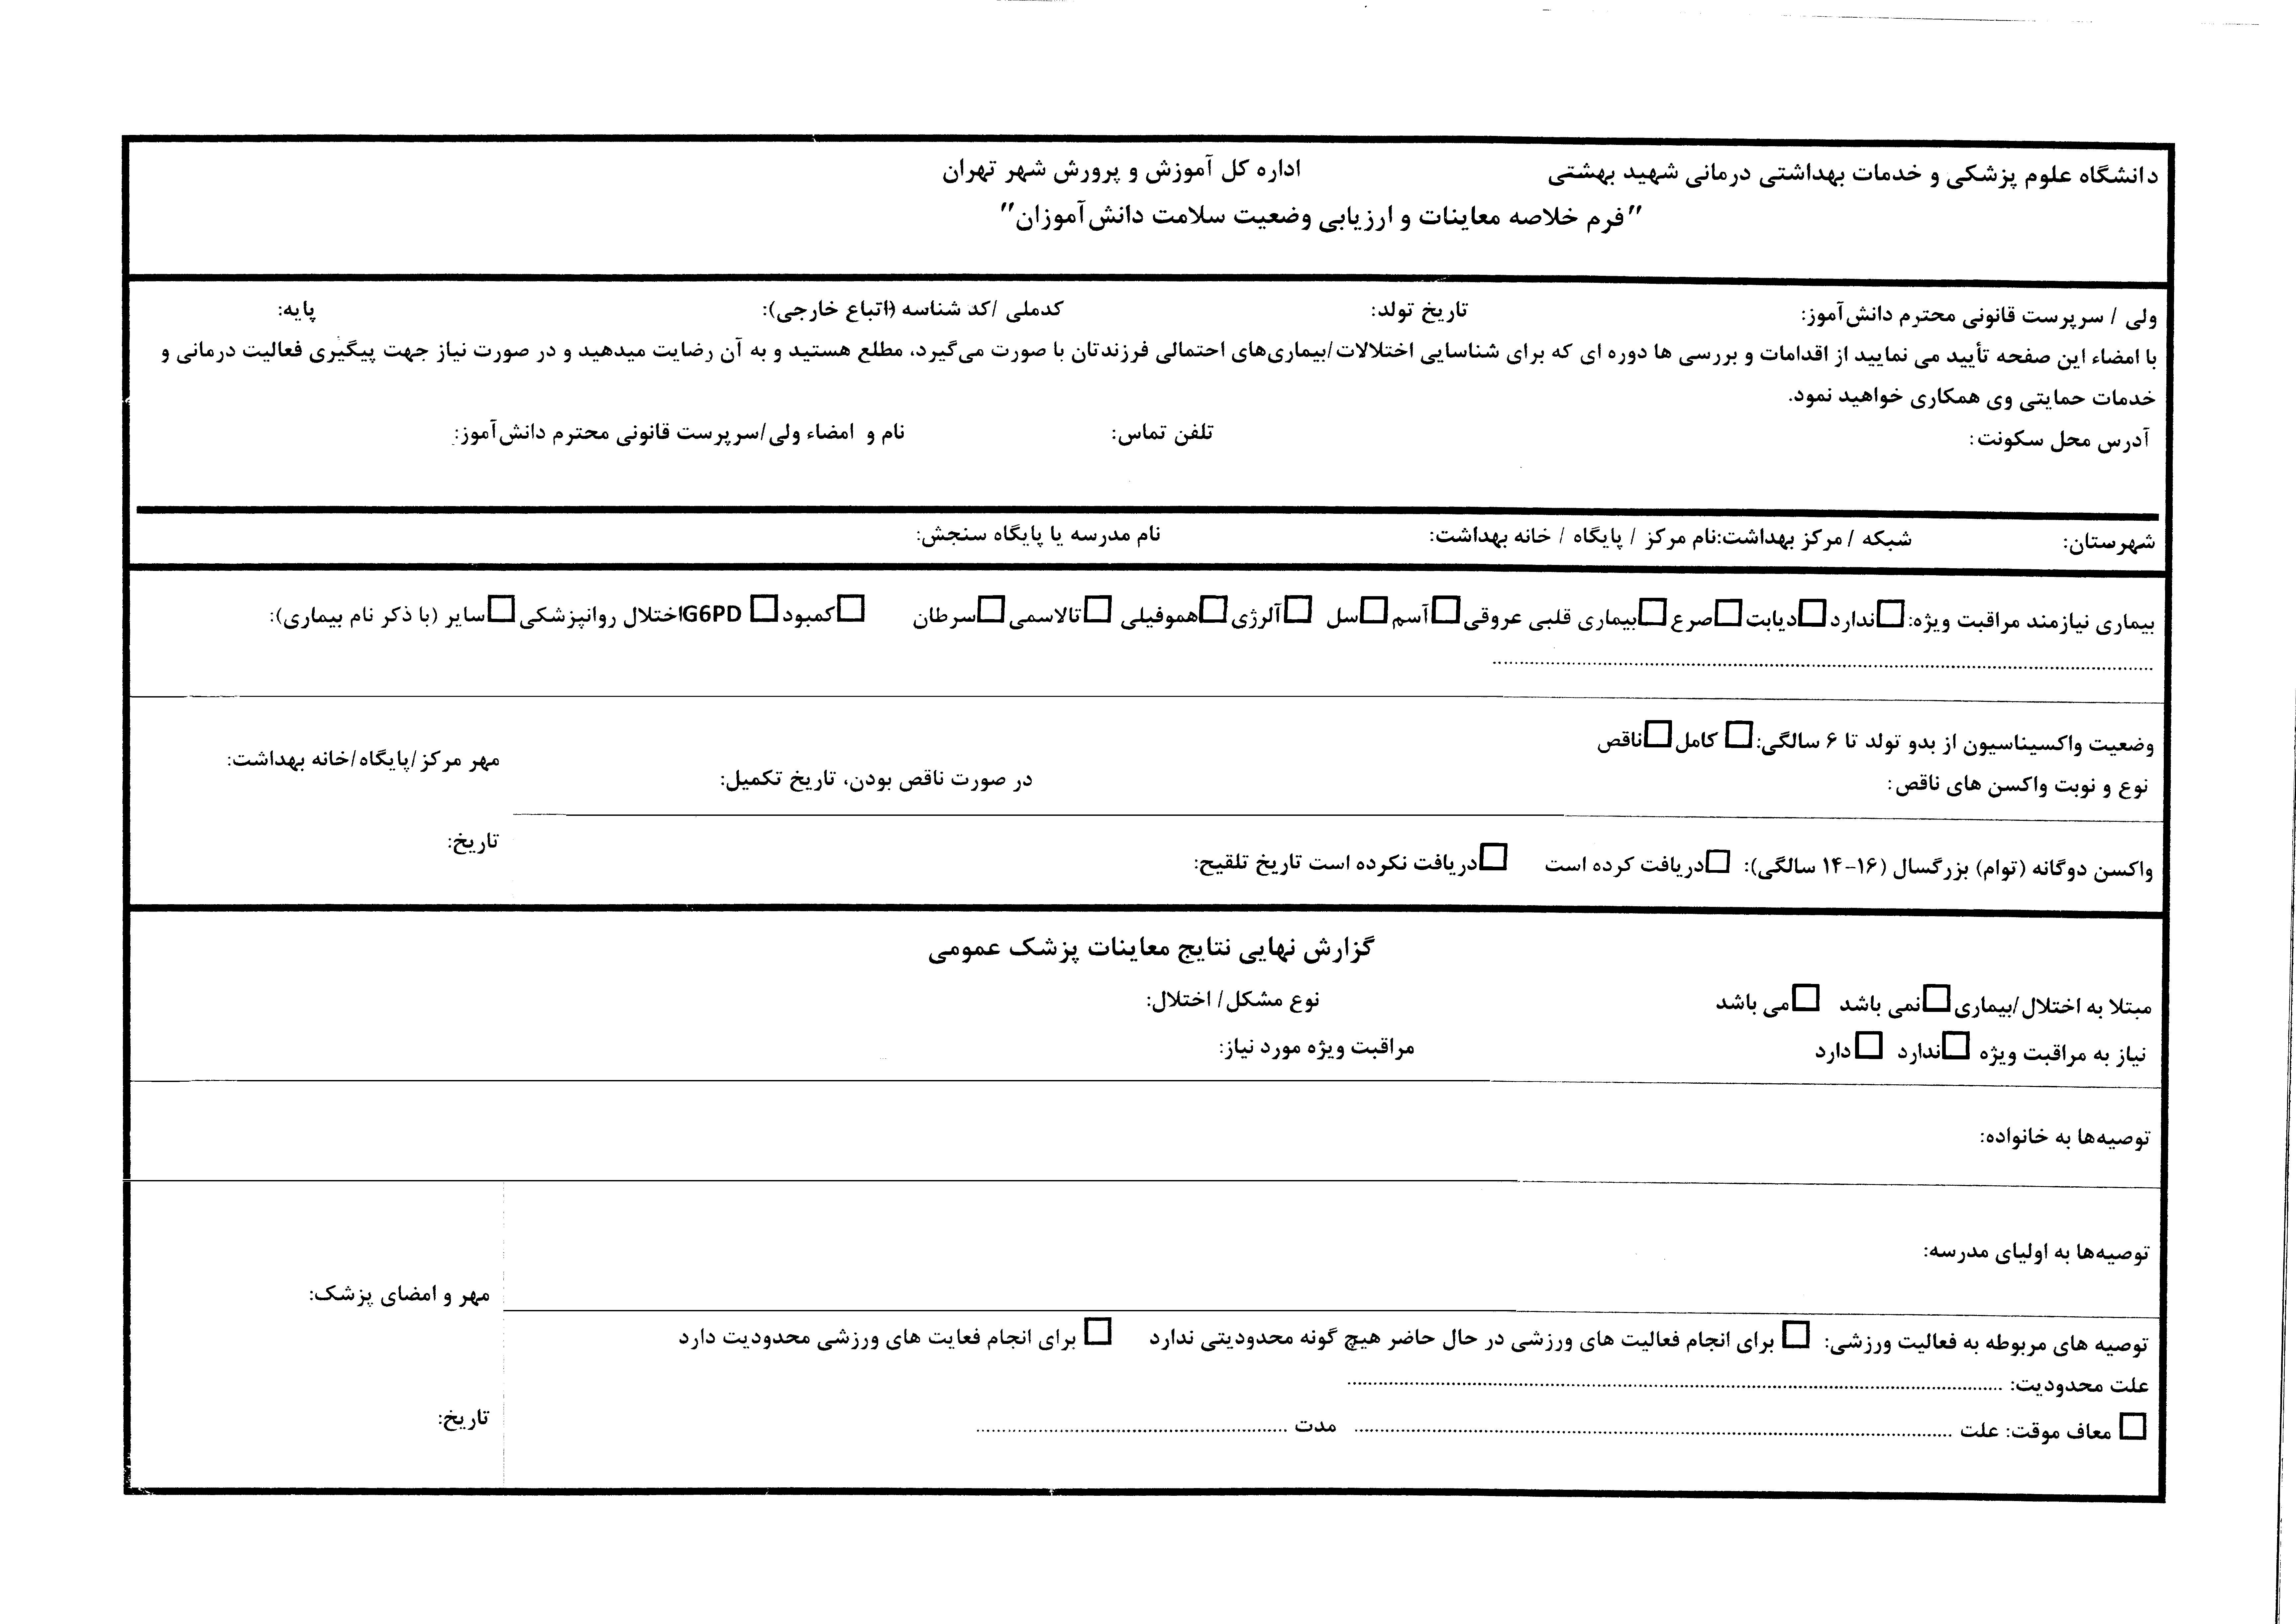 دانشگاه علوم پزشکی و خدمات بهداشتی درمانی شهید بهشتی اداره کل آموزش و پرورش شهر تهران
"فرم خلاصه معاینات و ارزیابی وضعیت سلامت دانش‌آموزان"
ولی / سرپرست قانونی محترم دانش‌آموز: تاریخ تولد: کدملی /کد شناسه (اتباع خارجی): پایه:
با امضاء این صفحه تأیید می نمایید از اقدامات و بررسی ها دوره ای که برای شناسایی اختلالات/بیماری‌های احتمالی فرزندتان با صورت می‌گیرد، مطلع هستید و به آن رضایت میدهید و در صورت نیاز جهت پیگیری فعالیت درمانی و
خدمات حمایتی وی همکاری خواهید نمود.
آدرس محل سکونت: تلفن تماس: نام و امضاء ولی/سرپرست قانونی محترم دانش‌آموز:
شهرستان: شبکه / مرکز بهداشت:نام مرکز / پایگاه / خانه بهداشت: نام مدرسه یا پایگاه سنجش:
بیماری نیازمند مراقبت ویژه: □ندارد □دیابت □صرع □بیماری قلبی عروقی □آسم □سل □آلرژی □هموفیلی □تالاسمی □سرطان □کمبود G6PD □اختلال روانپزشکی □سایر (با ذکر نام بیماری):
................................................................
وضعیت واکسیناسیون از بدو تولد تا ۶ سالگی: □ کامل □ناقص
نوع و نوبت واکسن های ناقص: در صورت ناقص بودن، تاریخ تکمیل: مهر مرکز/پایگاه/خانه بهداشت:
واکسن دوگانه (توام) بزرگسال (۱۶-۱۴ سالگی): □دریافت کرده است □دریافت نکرده است تاریخ تلقیح: تاریخ:
گزارش نهایی نتایج معاینات پزشک عمومی
مبتلا به اختلال/بیماری □نمی باشد □می باشد نوع مشکل/ اختلال:
نیاز به مراقبت ویژه □ندارد □دارد مراقبت ویژه مورد نیاز:
توصیه‌ها به خانواده:
توصیه‌ها به اولیای مدرسه:
مهر و امضای پزشک:
توصیه های مربوطه به فعالیت ورزشی: □ برای انجام فعالیت های ورزشی در حال حاضر هیچ گونه محدودیتی ندارد □ برای انجام فعایت های ورزشی محدودیت دارد
علت محدودیت: ................................................................
□ معاف موقت: علت ................................................................ مدت ................................ تاریخ: